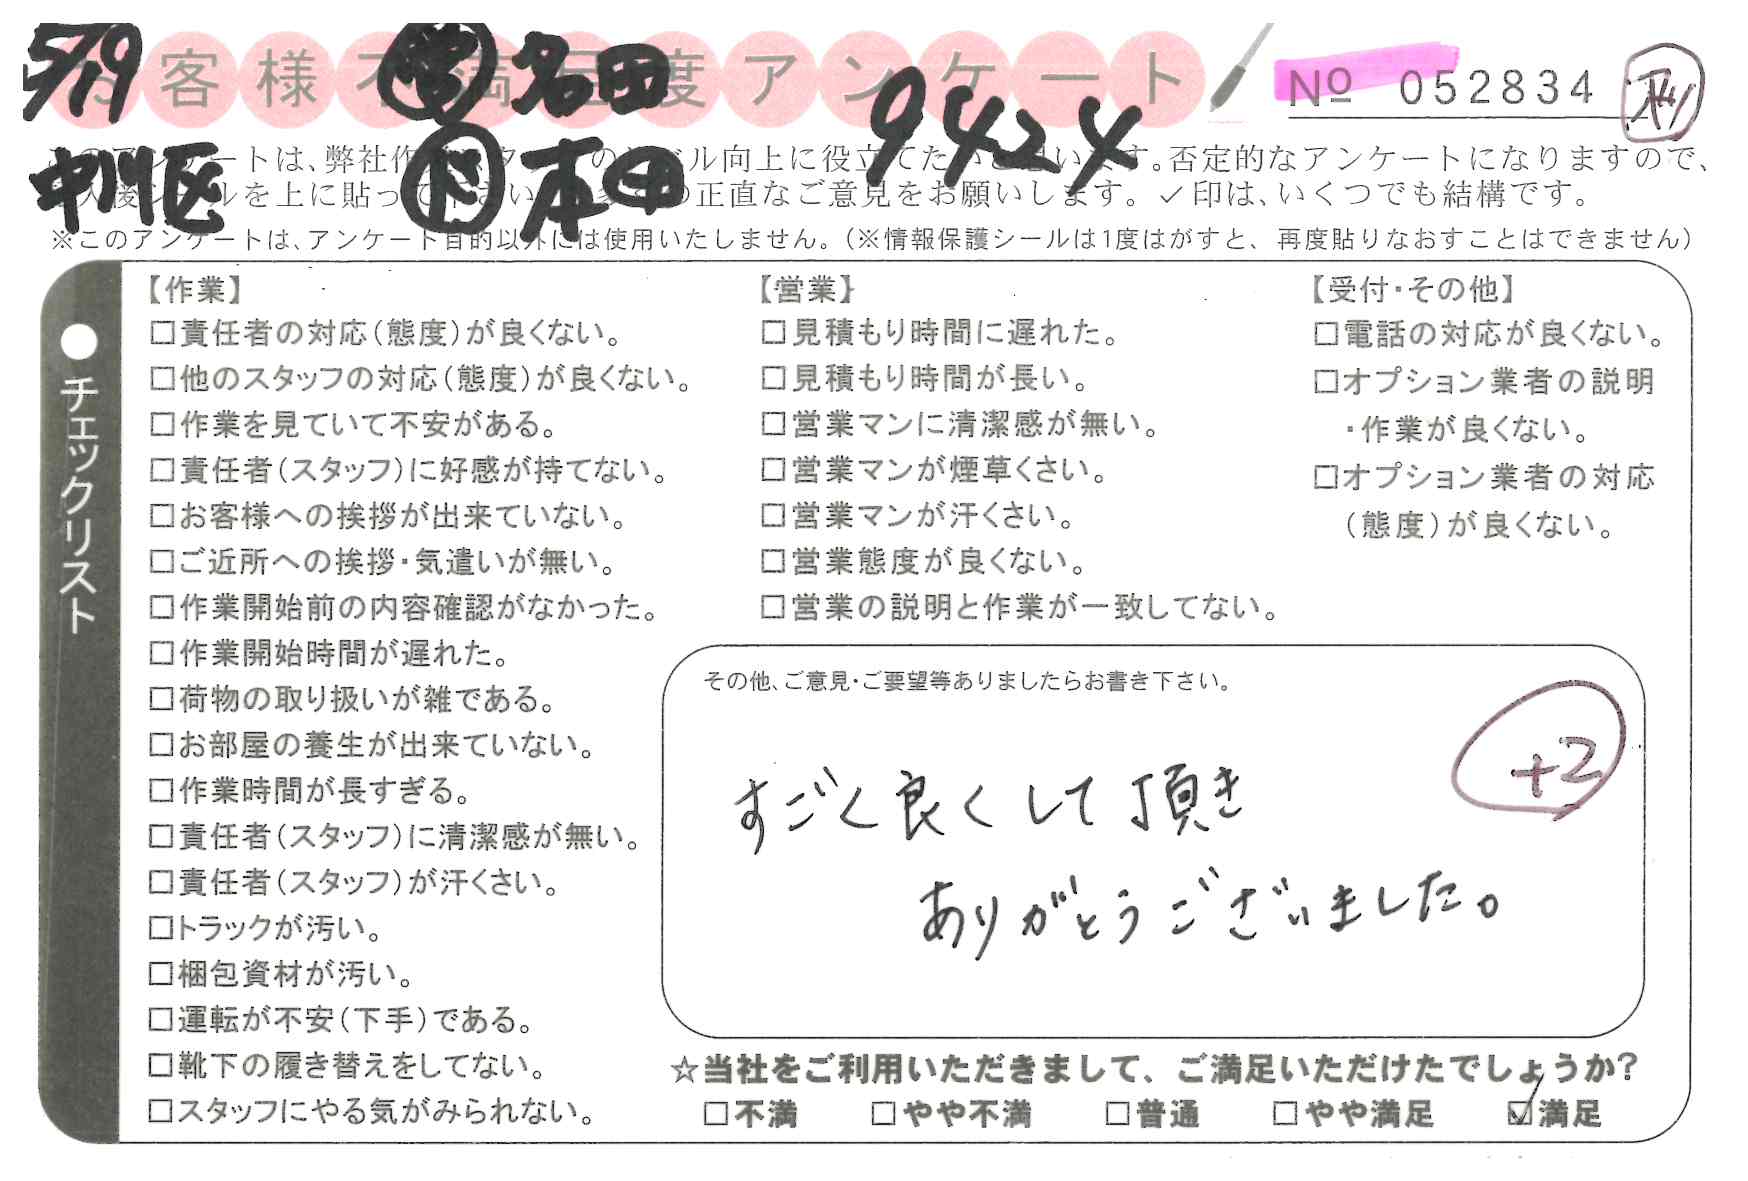 5/19 営 名田 9424
中川区 ド 本田
お客様不満足度アンケート
№ 052834
このアンケートは、弊社作業スタッフのレベル向上に役立てたいと思います。否定的なアンケートになりますので、
ご記入後シールを上に貼って下さい。お客様の正直なご意見をお願いします。✓印は、いくつでも結構です。
※このアンケートは、アンケート目的以外には使用いたしません。(※情報保護シールは1度はがすと、再度貼りなおすことはできません)
●チェックリスト
【作業】
□責任者の対応(態度)が良くない。
□他のスタッフの対応(態度)が良くない。
□作業を見ていて不安がある。
□責任者(スタッフ)に好感が持てない。
□お客様への挨拶が出来ていない。
□ご近所への挨拶・気遣いが無い。
□作業開始前の内容確認がなかった。
□作業開始時間が遅れた。
□荷物の取り扱いが雑である。
□お部屋の養生が出来ていない。
□作業時間が長すぎる。
□責任者(スタッフ)に清潔感が無い。
□責任者(スタッフ)が汗くさい。
□トラックが汚い。
□梱包資材が汚い。
□運転が不安(下手)である。
□靴下の履き替えをしてない。
□スタッフにやる気がみられない。
【営業】
□見積もり時間に遅れた。
□見積もり時間が長い。
□営業マンに清潔感が無い。
□営業マンが煙草くさい。
□営業マンが汗くさい。
□営業態度が良くない。
□営業の説明と作業が一致してない。
【受付・その他】
□電話の対応が良くない。
□オプション業者の説明
・作業が良くない。
□オプション業者の対応
(態度)が良くない。
その他、ご意見・ご要望等ありましたらお書き下さい。
+2
すごく良くして頂き
ありがとうございました。
☆当社をご利用いただきまして、ご満足いただけたでしょうか?
□不満 □やや不満 □普通 □やや満足 ☑満足